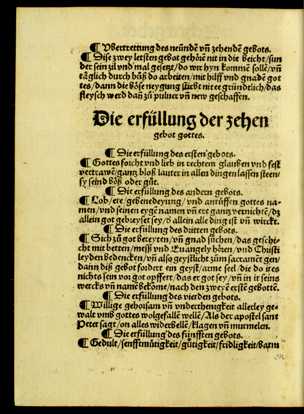 ¶ Vbertrettung des neünden vñ zehenden gebots.
¶ Dise zwey letsten gebot gehörē nit in die beicht/sun
der sein zil vnd mal gesetzt/do wir hyn kommē sollē/vñ
täglich durch büß do arbeiten/mit hilff vnd gnadē got
tes/dann die böse neygung stirbt nit er gründtlich/das
fleysch werd dañ zů puluer vñ new geschaffen.
Die erfüllung der zehen
gebot gottes.
¶ Die erfüllung des ersten gebots.
¶ Gottes forcht vnd lieb in rechtem glauben vnd fest
vertrawē/gantz bloß lauter in allen dingen lassen steen/
sy seind böß oder gůt.
¶ Die erfüllung des andern gebots.
¶ Lob/ere/gebenedeyung/vnd anrüffen gottes na-
men/vnd seinen eygē namen vñ ere gantz vernichtē/dz
allein got gebreyset sey/d allein alle ding ist vñ wirckt.
¶ Die erfüllung des dritten gebots.
¶ Sich zů got bereytē/vñ gnad sůchen/das geschi-
cht mit betten/mess vnd Euangely hören/vnd Christi
leyden bedencken/vñ also geystlich zum sacrament gen/
dann diß gebot fordert ein geyst/arme seel/die do ires
nichts sein vor got opffert/das er got sey/vñ in ir seins
wercks vñ namē bekōme/nach den zwey ē erstē gebottē.
¶ Die erfüllung des vierden gebots.
¶ Willige gehorsam vñ vnderthenigkeit allerley ge-
walt vmb gottes wolgefallē wellē/Als der apostel sant
Peter sagt/on alles widerbellē/klagen vñ murmelen.
¶ Die erfüllung des fünfften gebots.
¶ Gedult/senfftmütigkeit/gütigkeit/fridligkeit/barm